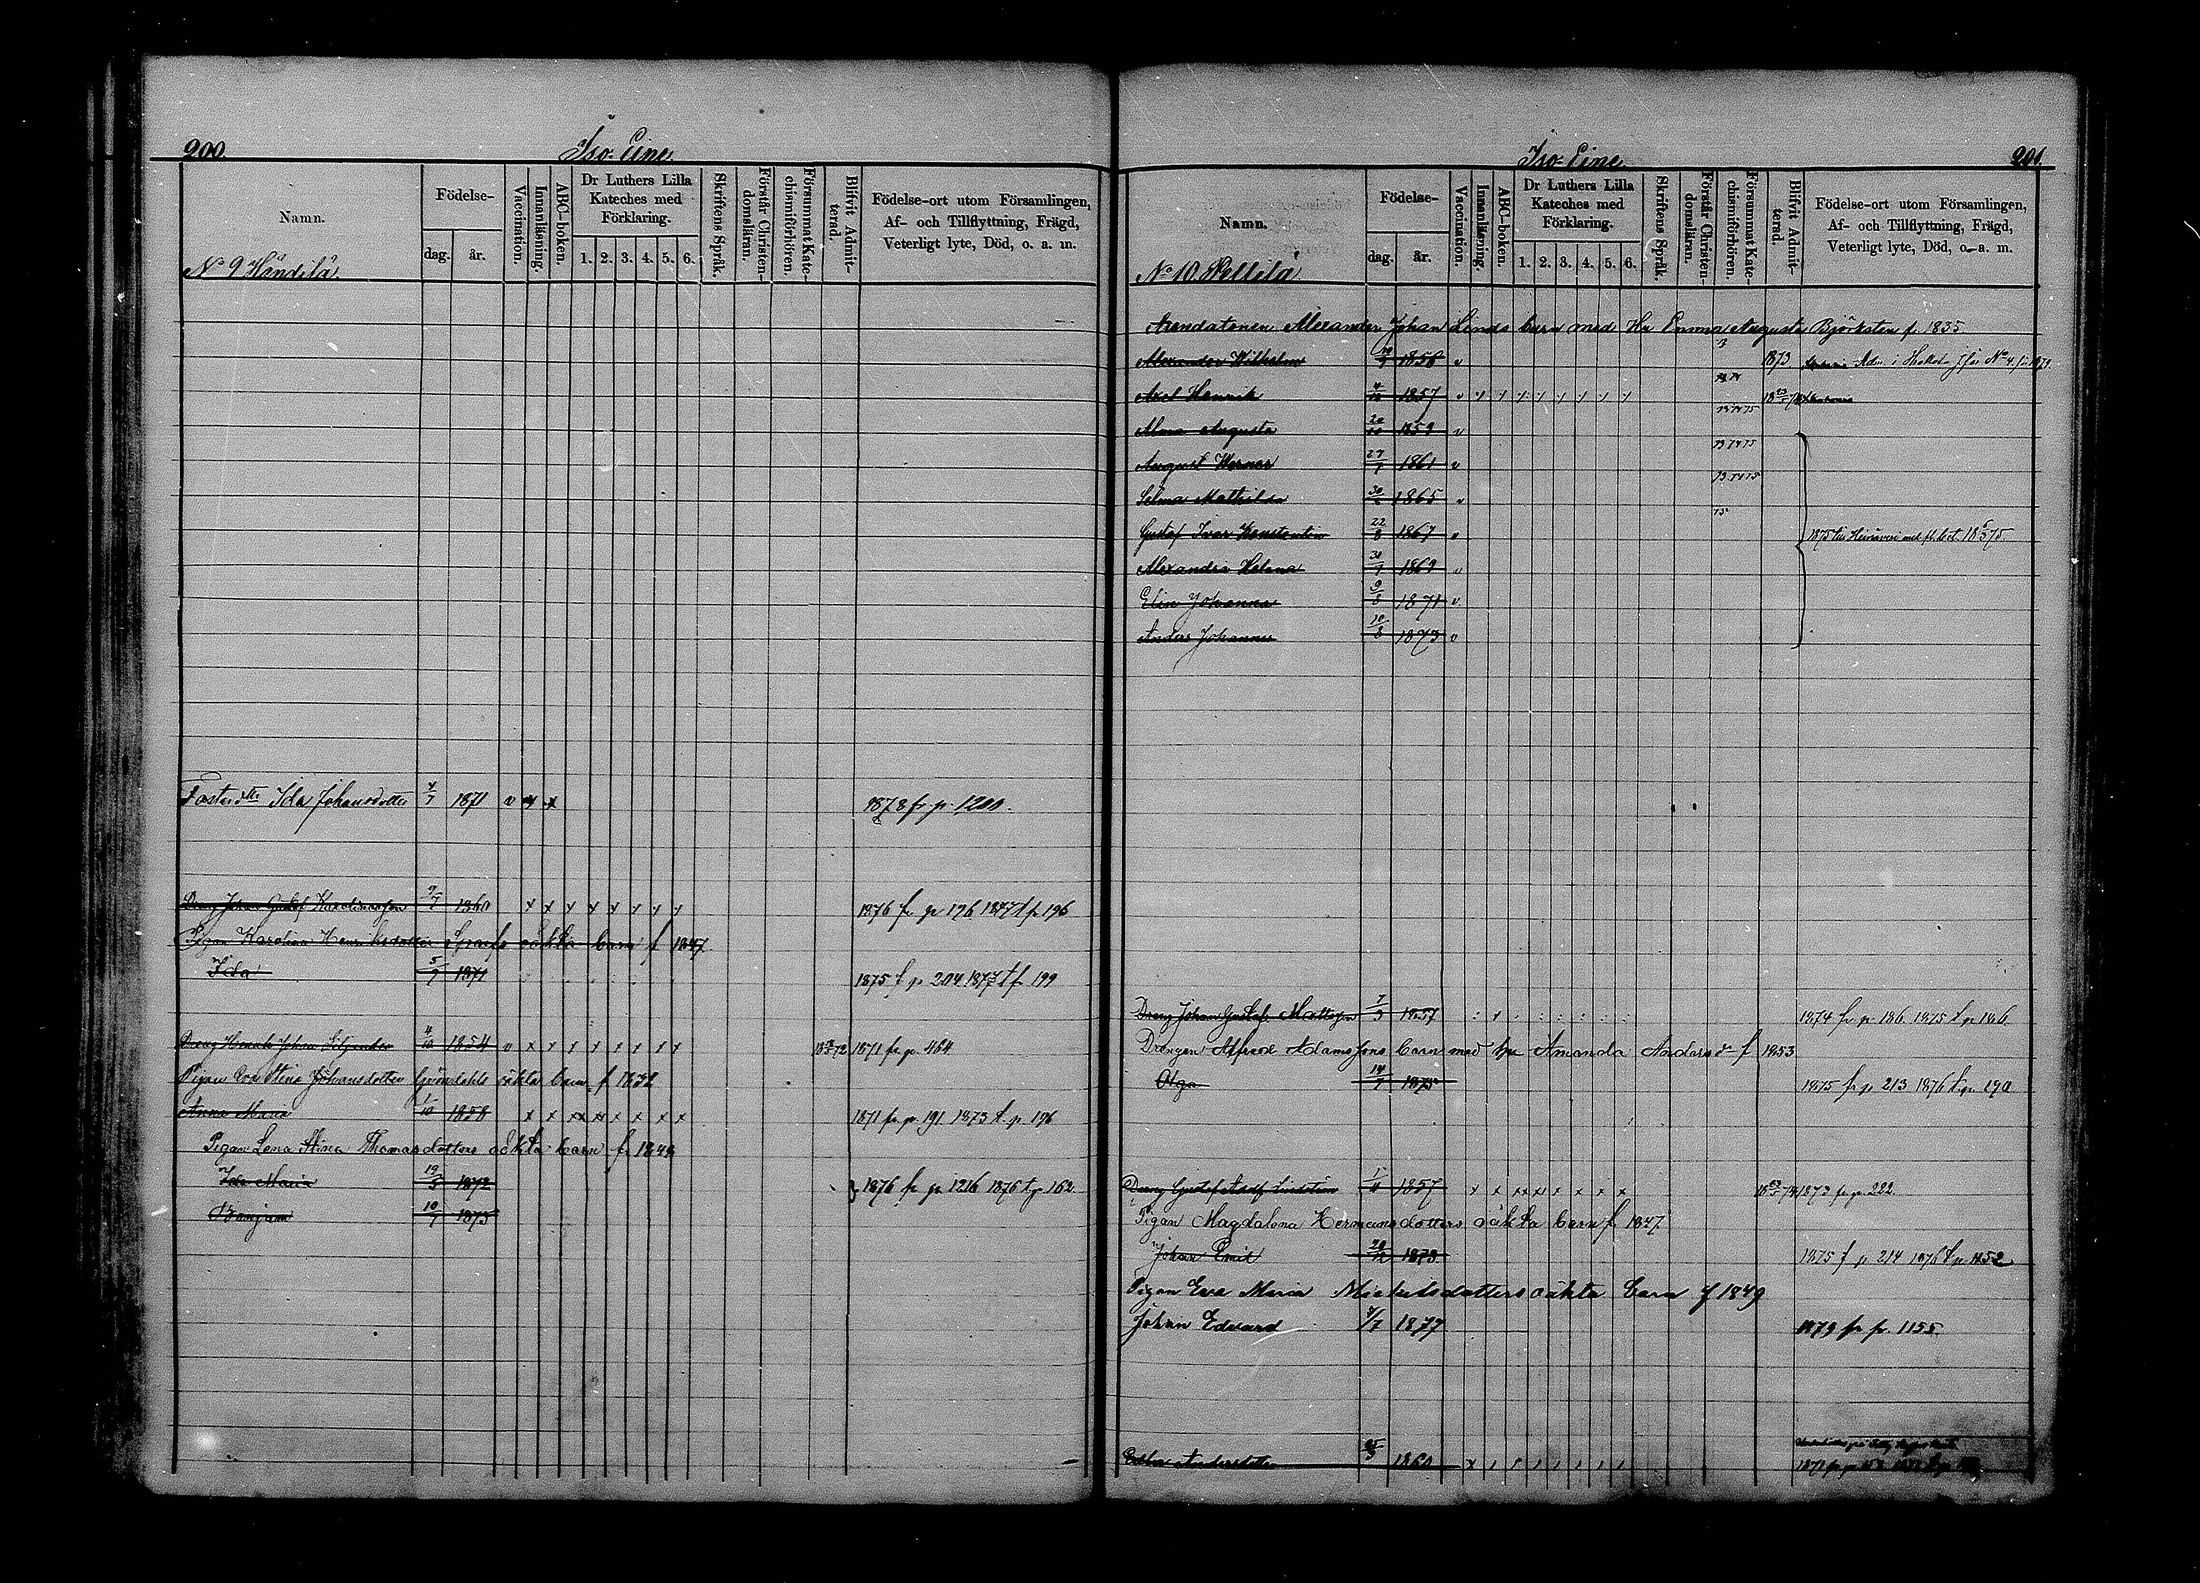 200.
Iso-Eine.
Namn.
Födelse-
dag.
år.
Vaccination.
Innanläsning.
ABC-boken.
Dr Luthers Lilla
Kateches med
Förklaring.
1. 2. 3. 4. 5. 6.
Skriftens Språk.
Förstår Christendomsläran.
Försummat Katechismiförhören.
Blifvit Admitterad.
Födelse-ort utom Församlingen,
Af- och Tillflyttning, Frägd,
Veterligt lyte, Död, o. a. m.
No 9 Händilä
Ida Johansdotter 4/7 1871 v x x 1878 fr. p. 1200.
Dreng Johan Gustaf 9/7 1860 x x x x x x x x 1876 fr p 196 1877 t p 196
Pigan Karolina Henriksdotter oäkta barn f 1847.
Ida 5/7 1871 1875 f p 204 1877 t p 199
Dreng Henrik Johan 4/10 1854 v x x x x x x x x 1871 fr. p. 464
Pigan Eva Stina Johansdotter oäkta barn f. 1832
Anna Maria 1/10 1858 x x xx x x x x x 1871 fr. p. 191. 1873 t. p. 196
Pigan Lena Stina Thomasdotters oäkta barn f. 1849
Ida Maria 19/3 1872 } 1876 fr p 1216 1876 t p 162.
Benjam 10/7 1873
Iso-Eine
201.
Namn.
Födelse-
dag.
år.
Vaccination.
Innanläsning.
ABC-boken.
Dr Luthers Lilla
Kateches med
Förklaring.
1. 2. 3. 4. 5. 6.
Skriftens Språk.
Förstår Christendomsläran.
Försummat Katechismiförhören.
Blifvit Admitterad.
Födelse-ort utom Församlingen,
Af- och Tillflyttning, Frägd,
Veterligt lyte, Död, o. a. m.
No 10 Pellilä
Arendatoren Alexander Johan Linds barn med Hu Emma Augusta Björksten f. 1835
Alexander Wilhelm 1856 v 1873
Axel Henrik 4/12 1857 v
Alma Augusta 1859 v 73 74 75
August Werner 27/7 1861 v 73 74 75
Selma Mathilda 1865 v 73 74 75
Gustaf Ivar Konstantin 22/8 1867 v 75
Alexandra Helena 1869 v
Elin Johanna 9/8 1871 v
Anders Johannes 10/8 1873 v
Dreng Johan Gustaf Mattsson 7/3 1857 1874 fr p 186. 1875 t p 186
Drengen Alfred Adamssons barn med hu Amanda Andersd- f 1853
Olga 14/7 1875 1875 fr p 213 1876 t p. 190
Dreng Gustaf Adolf 1857 x x xx xx x x x x 1873 fr. p. 222.
Pigan Magdalena Hermansdotters oäkta barn f 1847
Johan Emil 1873 1875 f p 214 1876 t p 1152
Pigan Eva Maria Mickelsdotters oäkta barn f 1849
Johan Edvard 1877 1879 fr p. 1155.
Andersdotter 1860